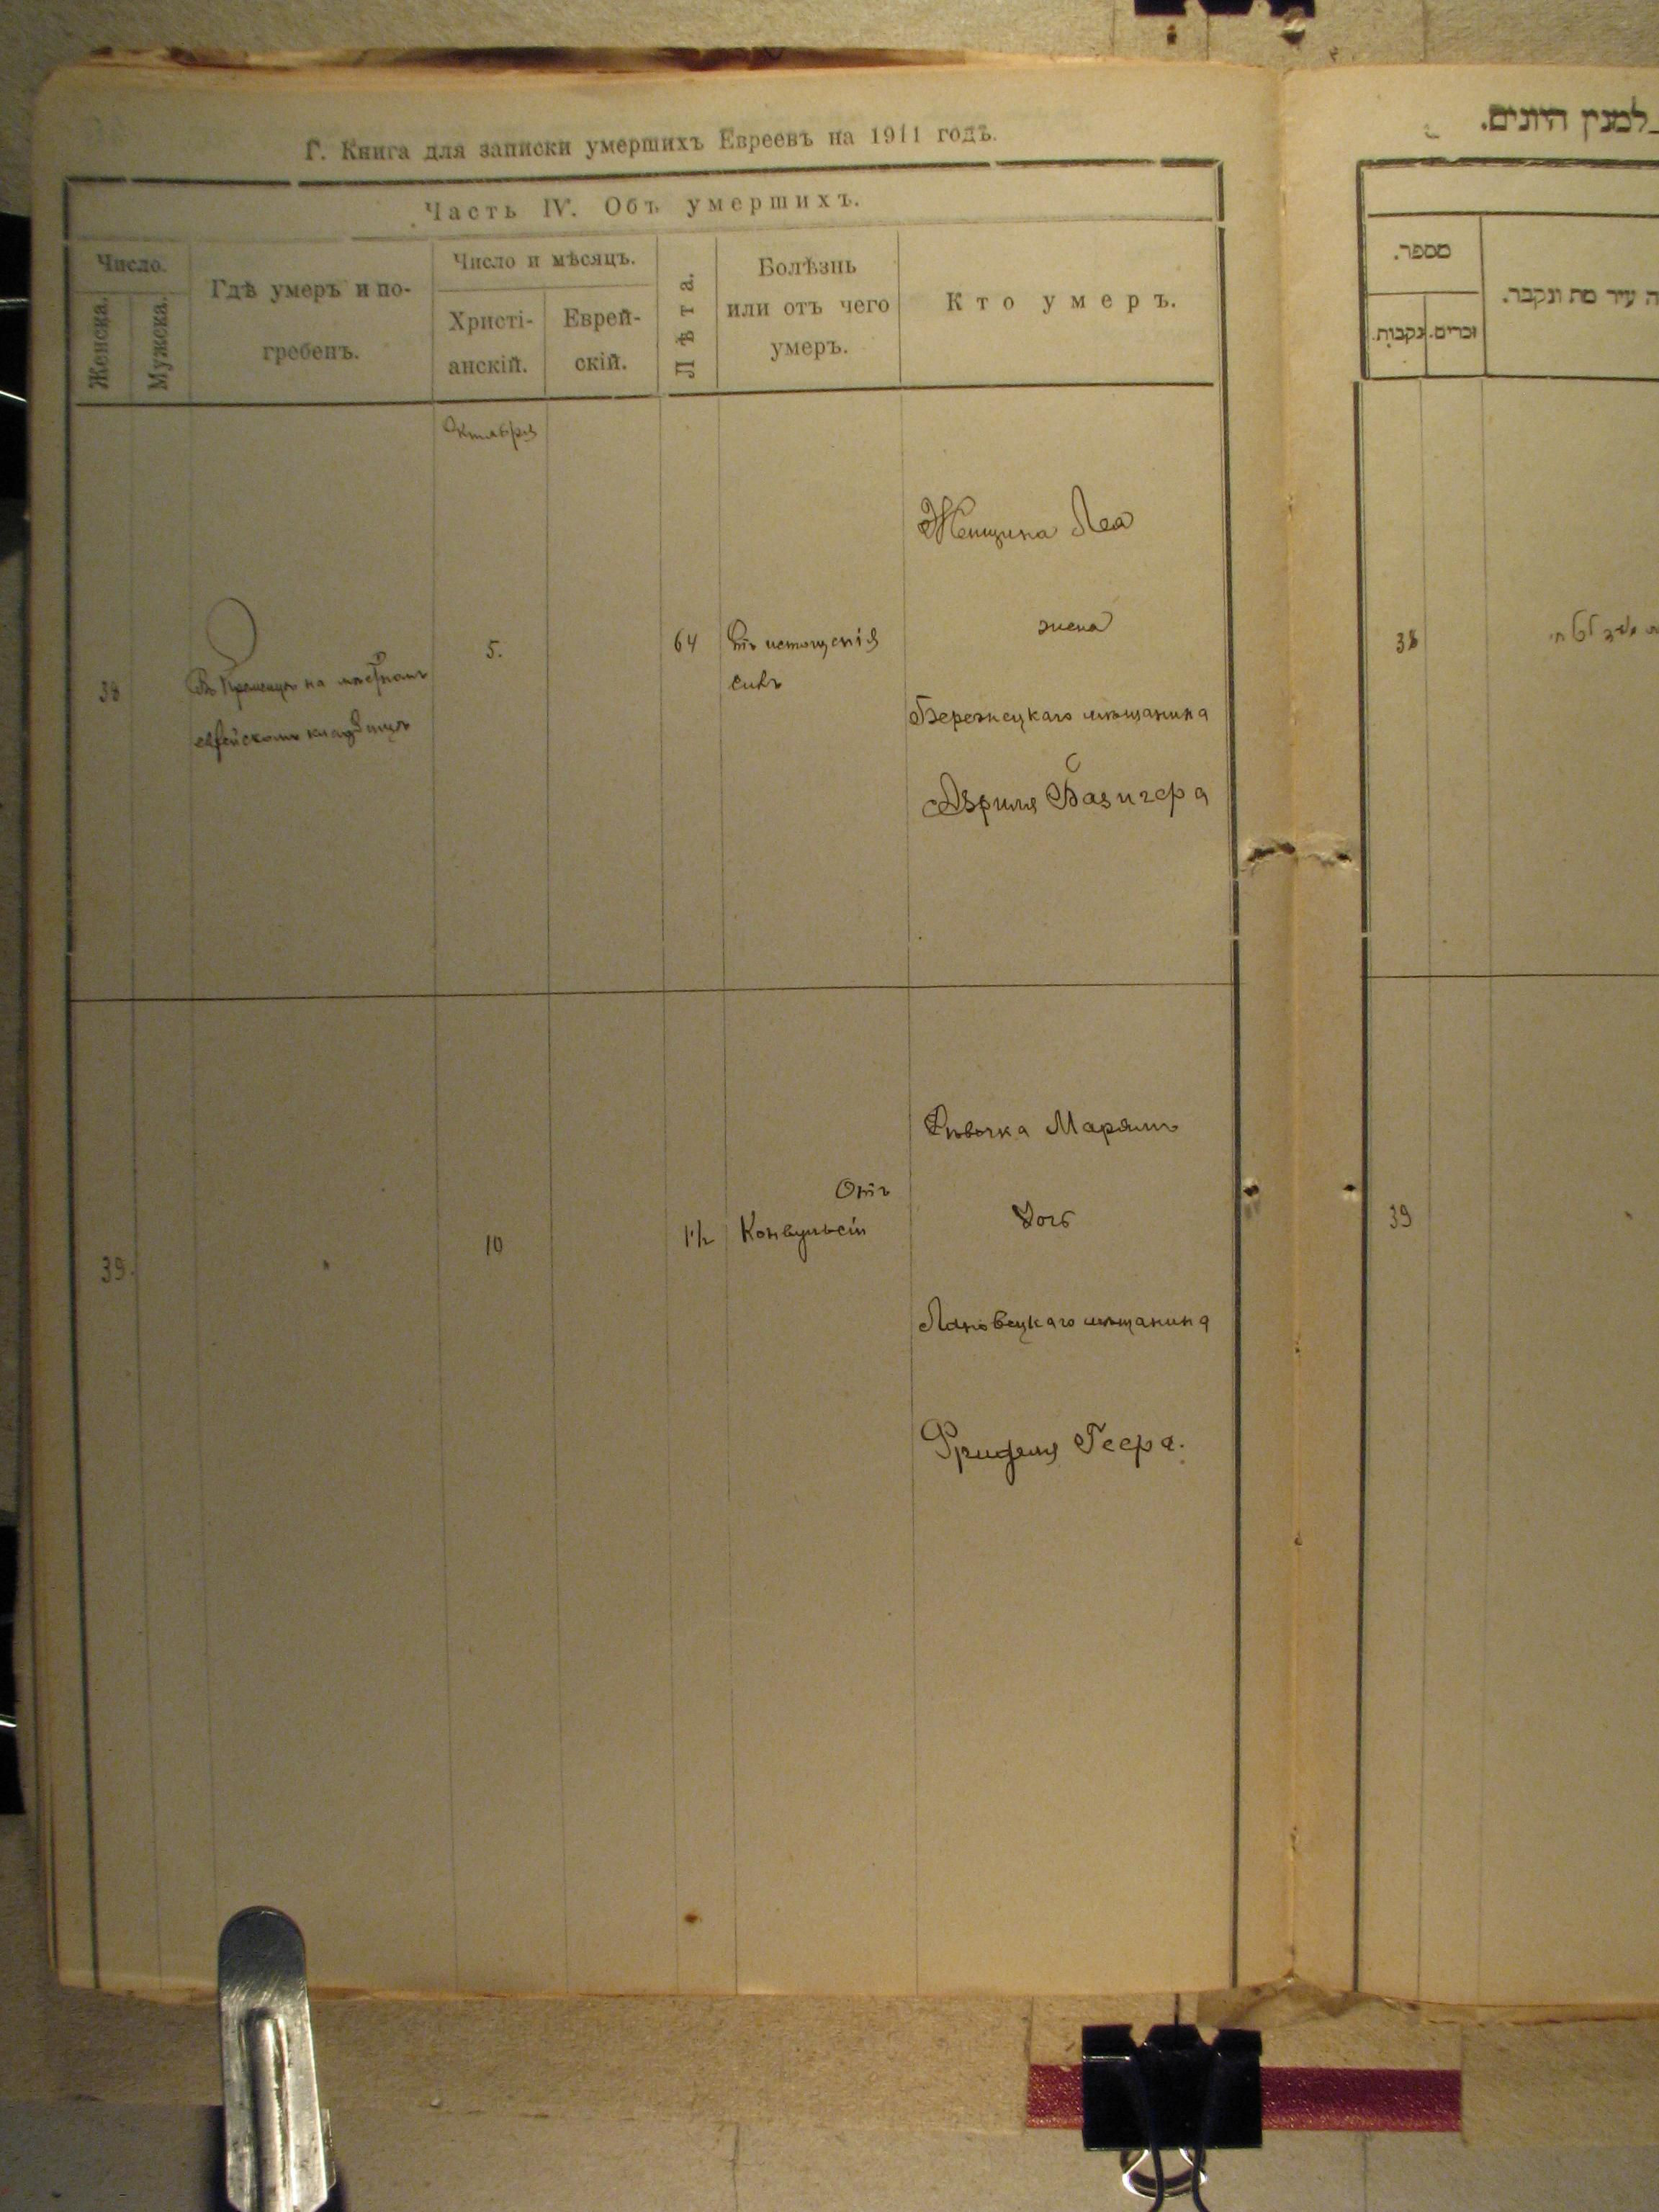 Г. Книга для записки умершихъ Евреевъ на 1911 годъ.
Часть IV. Объ умершихъ.
Число.
Женска.
Мужска.
Гдѣ умеръ и по-
гребенъ.
Число и мѣсяцъ.
Христі-
анскій.
Еврей-
скій.
Лѣта.
Болѣзнь
или отъ чего
умеръ.
Кто умеръ.
Октября
38
Въ Кременцѣ на мѣстномъ
еврейскомъ кладбищѣ
5.
64
Отъ истощенія
силъ
Женщина Леа
жена
Бережецкаго мѣщанина
Азриля Базигера
39.
10
1½
Отъ
Конвульсіи
Дѣвочка Марямъ
дочь
Лановецкаго мѣщанина
Фриделя Геера.
למנין היונים.
מספר.
נקבות.
זכרים.
ה עיר מת ונקבר.
38
39